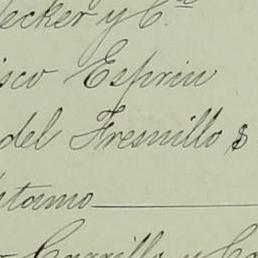 ecker y C.ª
isco Espriu
del Fresnillo $
stamo
Carrillo y Ca